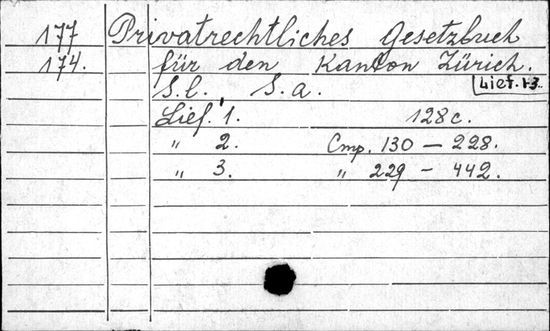 177 Privatrechtliches Gesetzbuch
174. für den Kanton Zürich.
S.l. S.a. Lief. 1-3
Lief. 1. 128 с.
" 2. Стр. 130 — 228.
" 3. " 229 — 442.